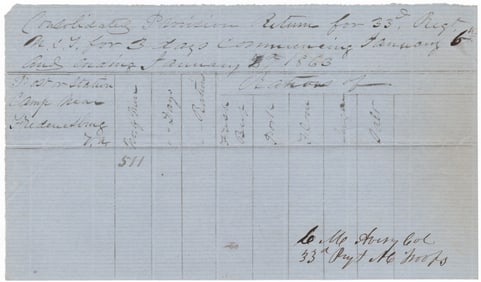 Consolidated Provision Return for 33d Regt
N.C.T. for 3 days Commencing January 6th
and ending January 8th 1863
Post or Station
Camp near
Fredericksburg
Va
No of Men
Days
Rations
Rations of
Fresh Beef
Pork
Flour
Sugar
Salt
511
C M Avery Col
33d Regt NC Troops